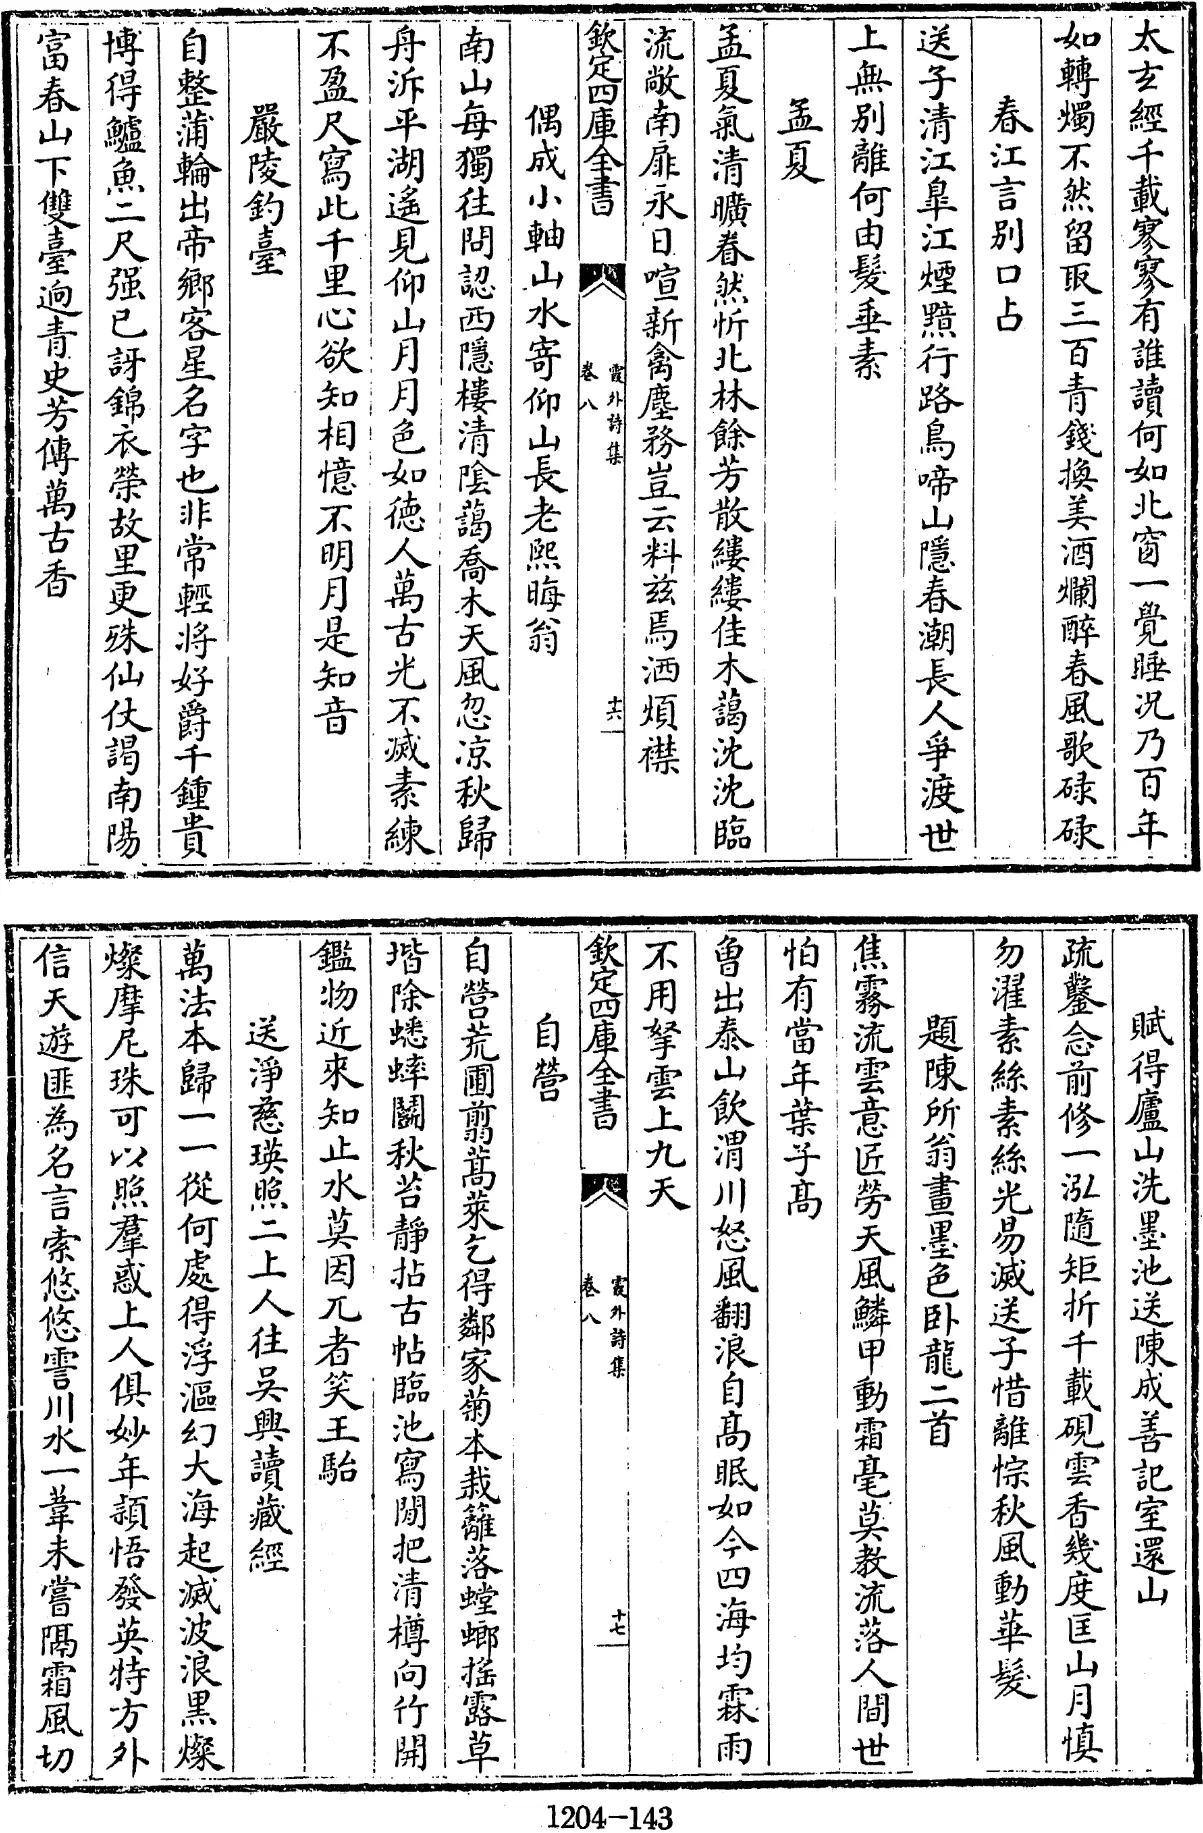 太玄經千載寥寥有誰讀何如北窗一覺睡况乃百年
如轉燭不然留取三百青錢換美酒爛醉春風歌碌碌
春江言别口占
送子清江臯江煙黯行路鳥啼山隱春潮長人爭渡世
上無别離何由髮垂素
孟夏
孟夏氣清曠眷然忻北林餘芳散縷縷佳木藹沈沈臨
流敞南扉永日喧新禽塵務豈云料兹焉洒煩襟
欽定四庫全書
霞外詩集
卷八
十六
偶成小軸山水寄仰山長老熙晦翁
南山每獨往問認西隱樓清陰藹喬木天風忽凉秋歸
舟泝平湖遙見仰山月月色如德人萬古光不滅素練
不盈尺寫此千里心欲知相憶不明月是知音
嚴陵釣臺
自整蒲輪出帝鄉客星名字也非常輕將好爵千鍾貴
博得鱸魚二尺强已訝錦衣榮故里更殊仙仗謁南陽
富春山下雙臺逈青史芳傳萬古香
賦得廬山洗墨池送陳成善記室還山
疏鑿念前修一泓隨矩折千載硯雲香幾度匡山月慎
勿濯素絲素絲光易滅送子惜離悰秋風動華髮
題陳所翁畫墨色卧龍二首
焦霧流雲意匠勞天風鱗甲動霜毫莫教流落人間世
怕有當年葉子髙
曾出泰山飲渭川怒風翻浪自髙眠如今四海均霖雨
不用拏雲上九天
欽定四庫全書
霞外詩集
卷八
十七
自營
自營荒圃翦蒿萊乞得鄰家菊本栽籬落螳螂摇露草
堦除蟋蟀鬭秋苔靜拈古帖臨池寫閒把清樽向竹開
鑑物近來知止水莫因兀者笑王駘
送淨慈瑛照二上人往吳興讀藏經
萬法本歸一一從何處得浮漚幻大海起滅波浪黑燦
燦摩尼珠可以照羣惑上人俱妙年頴悟發英特方外
信天遊匪為名言索悠悠霅川水一葦未嘗隔霜風切
1204-143